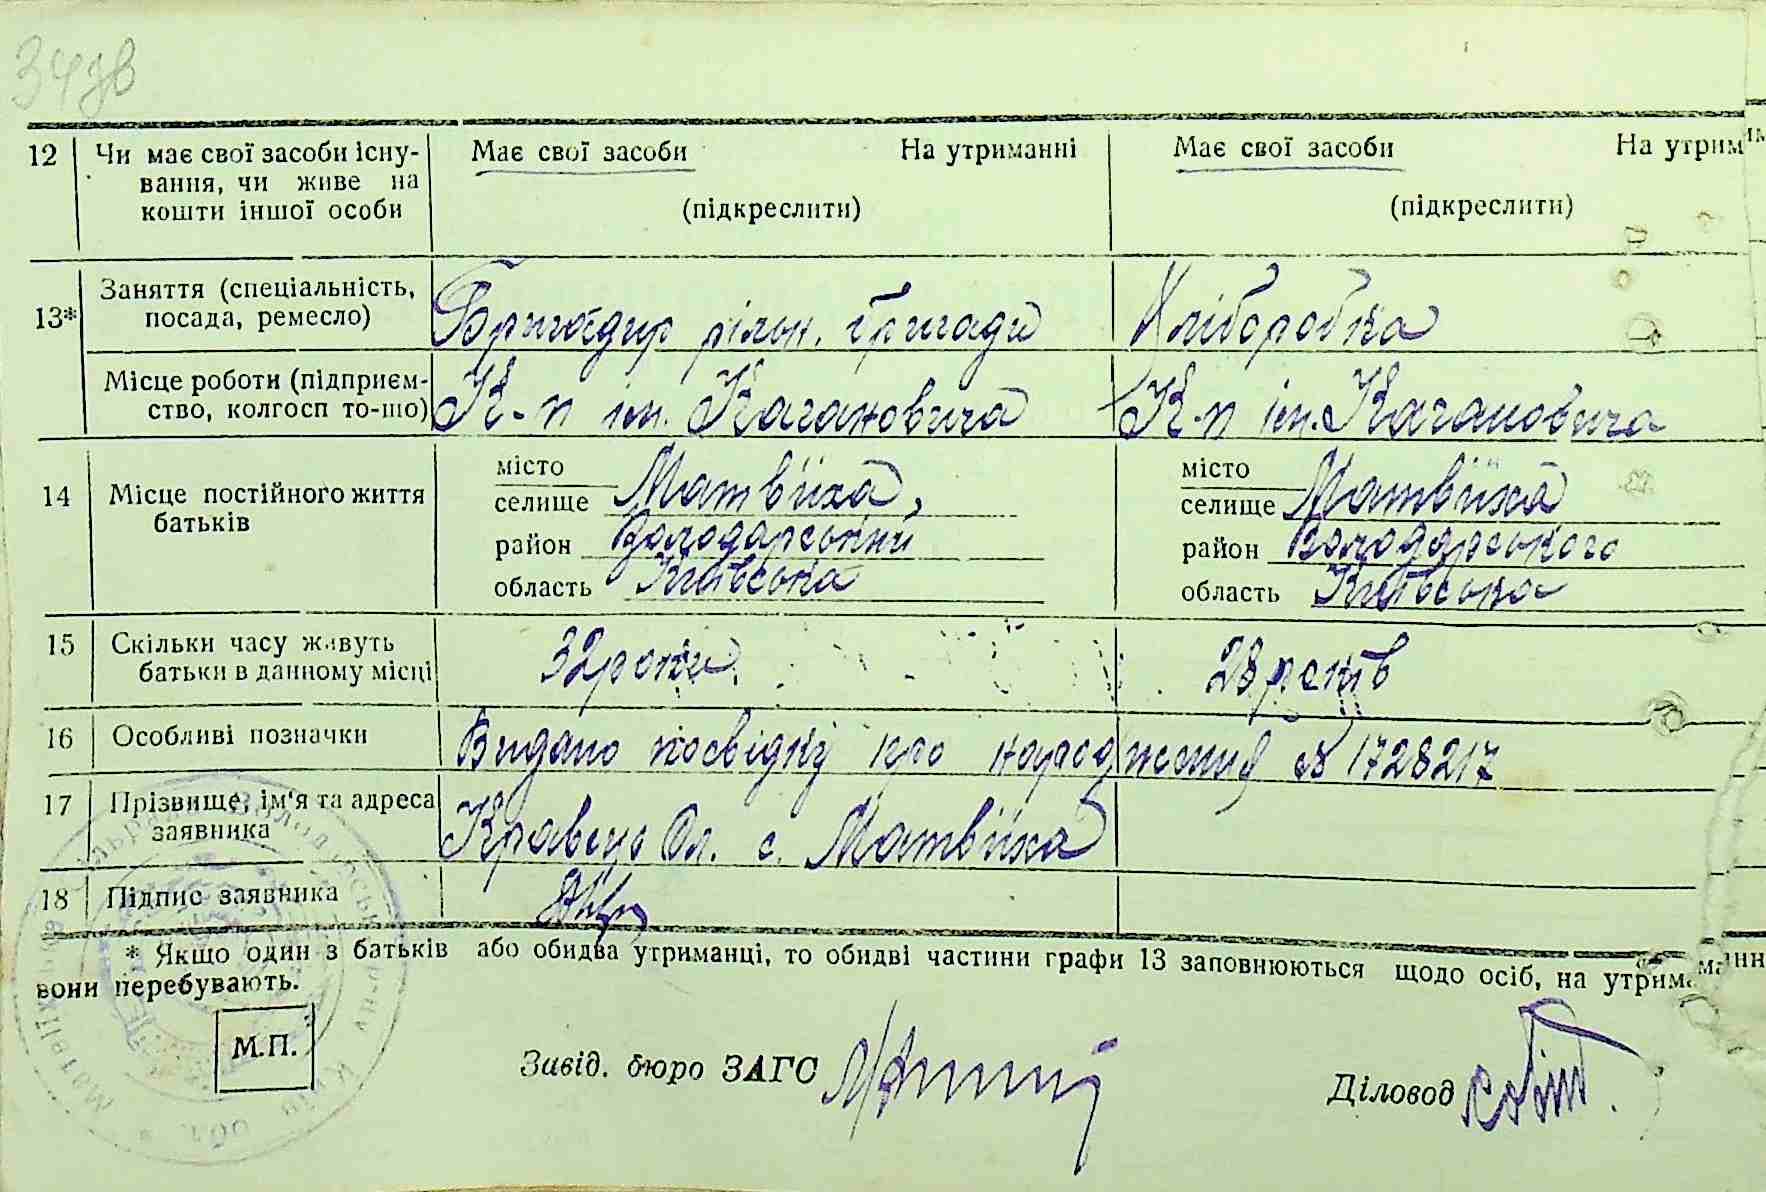 34зв
12 Чи має свої засоби існу- Має свої засоби На утриманні Має свої засоби На утрим
вання, чи живе на
кошти іншої особи (підкреслити) (підкреслити)
13* Заняття (спеціальність, Бригадир рільн. бригади Хліборобка
посада, ремесло)
Місце роботи (підприєм- К-п ім. Кагановича К-п ім. Кагановича
ство, колгосп то-що)
14 Місце постійного життя місто місто
батьків селище Матвіїха, селище Матвіїха
район Володарський район Володарського
область Київська область Київська
15 Скільки часу живуть 32 роки. 28 років
батьки в данному місці
16 Особливі позначки Видано посвідку про народження № 1728217
17 Прізвище, ім'я та адреса Кравець Ол. с. Матвіїха
заявника
18 Підпис заявника
* Якщо один з батьків або обидва утриманці, то обидві частини графи 13 заповнюються щодо осіб, на утрима
вони перебувають.
М.П. Завід. бюро ЗАГС Діловод